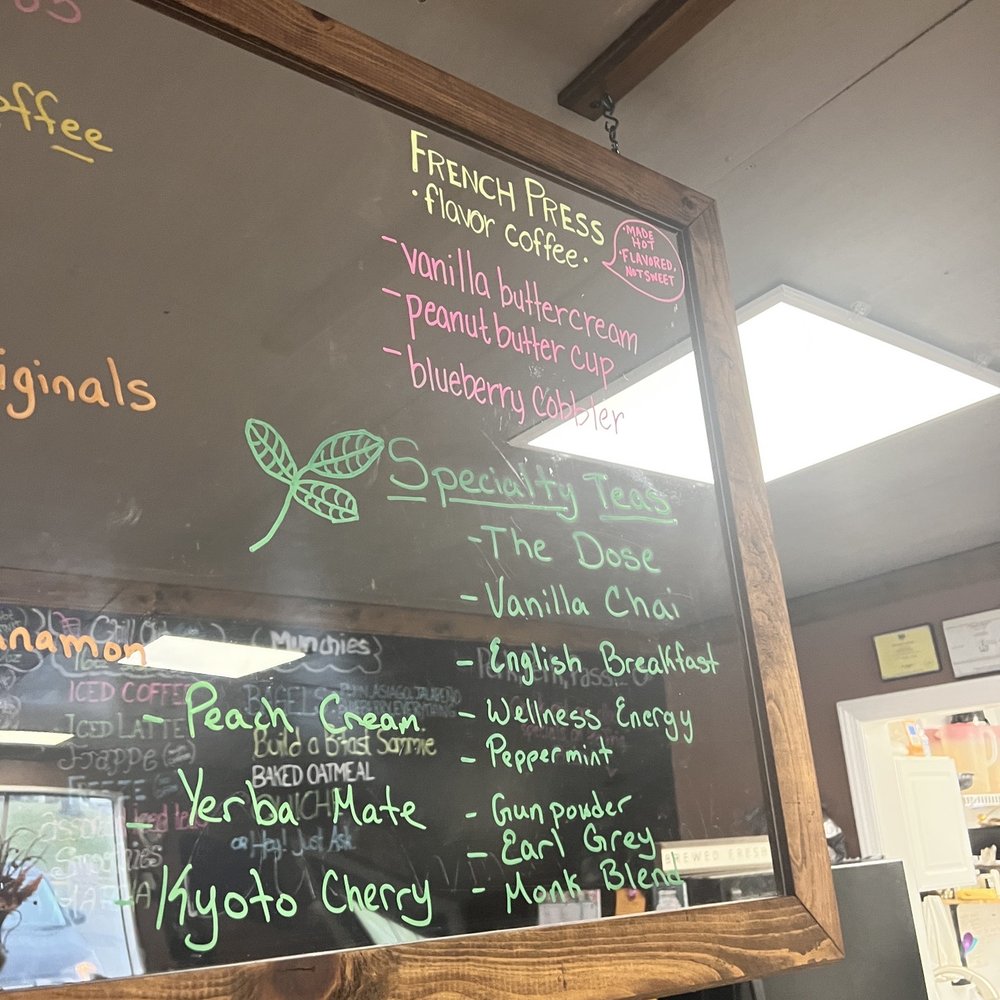 offee
FRENCH PRESS
• flavor coffee •
• MADE
HOT
• FLAVORED,
NOT SWEET
- vanilla buttercream
- peanut butter cup
- blueberry cobbler
iginals
Specialty Teas
- The Dose
- Vanilla Chai
- English Breakfast
- Wellness Energy
- Peppermint
- Gunpowder
- Earl Grey
- Monk Blend
- Peach Cream
- Yerba Mate
- Kyoto Cherry
nnamon
Munchies
ICED COFFEE
ICED LATTE
Frappe
BAGELS
Build a Bfast Sammie
BAKED OATMEAL
or Hey! Just Ask
BREWED FRESH